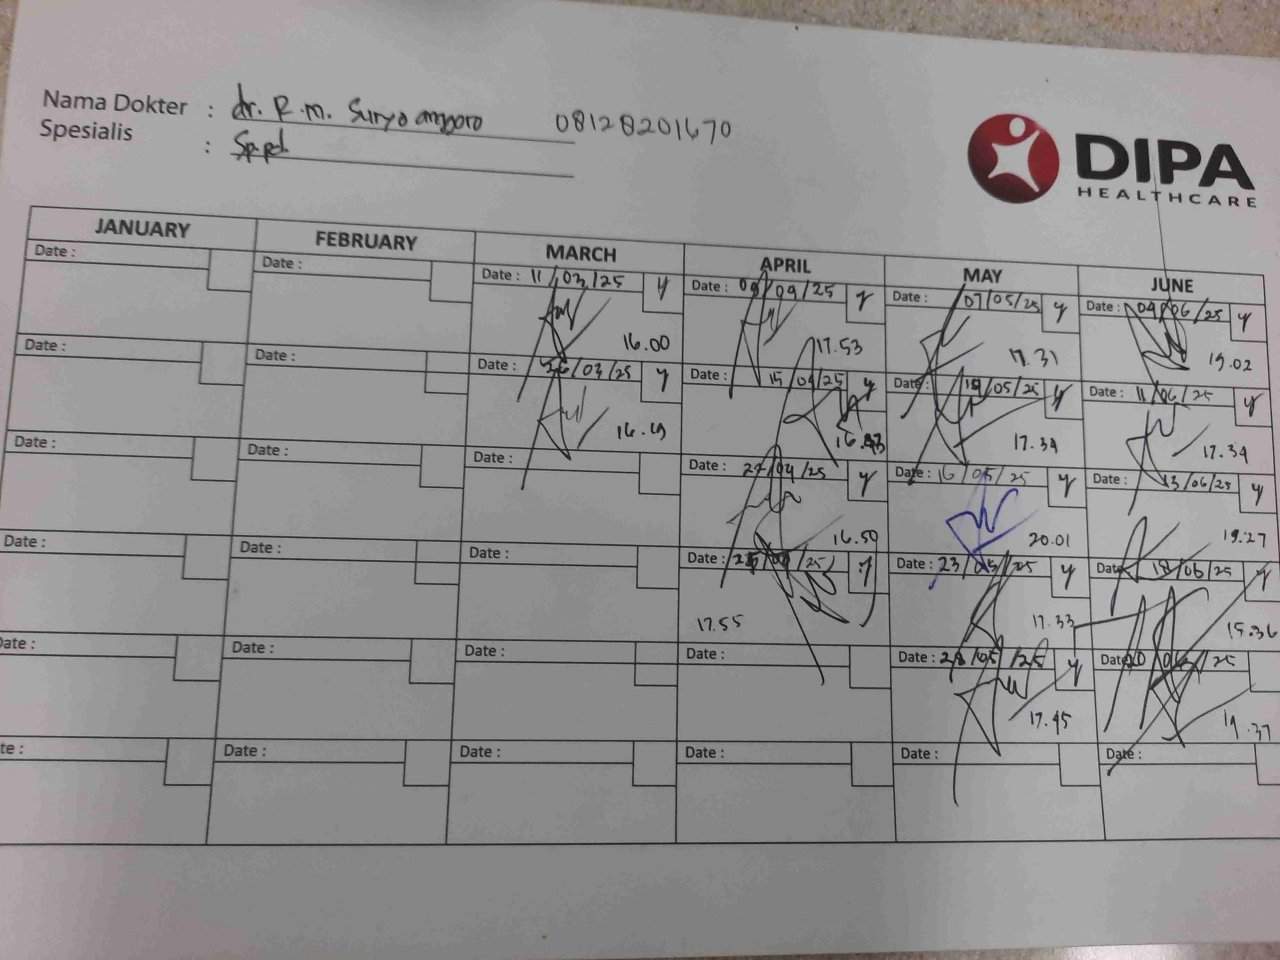 Nama Dokter : dr. R.M. Suryo anggoro 08128201670
Spesialis : Sp.pd
DIPA
HEALTHCARE
JANUARY FEBRUARY MARCH APRIL MAY JUNE
Date : Date : Date : 11/03/25 y Date : 09/04/25 y Date : 07/05/25 y Date : 04/06/25 y
16.00 17.53 17.31 19.02
Date : Date : Date : 26/03/25 y Date : 15/04/25 y Date : /05/25 y Date : 11/06/25 y
17.34 17.34
Date : Date : Date : Date : 22/04/25 y Date : 16/05/25 y Date : 13/06/25 y
16.50 20.01 19.27
Date : Date : Date : Date : Date : 23/05/25 y Date : 18/06/25 y
17.55 17.33 15.36
Date : Date : Date : Date : Date : 28/05/25 y Date : 20/06/25
17.45 19.37
Date : Date : Date : Date : Date : Date :